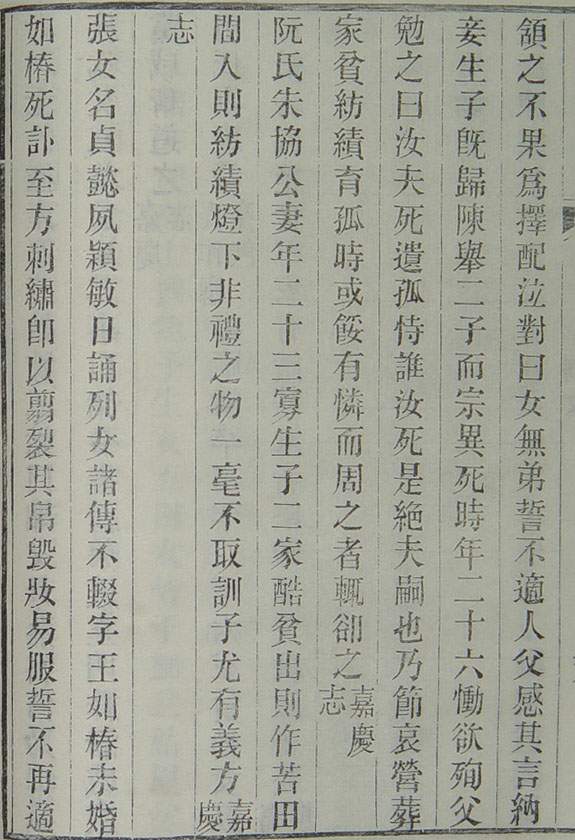 領之不果爲擇配泣對曰女無弟誓不適人父感其言納
妾生子旣歸陳舉二子而宗異死時年二十六慟欲殉父
勉之曰汝夫死遺孤恃誰汝死是絶夫嗣也乃節哀營葬
家貧紡績育孤時或餒有憐而周之者輒卻之嘉慶志
阮氏朱協公妻年二十三寡生子二家酷貧出則作苦田
間入則紡績燈下非禮之物一毫不取訓子尤有義方嘉慶
志
張女名貞懿夙穎敏日誦列女諸傳不輟字王如椿未婚
如椿死訃至方刺繡卽以翦裂其帛毀妝易服誓不再適